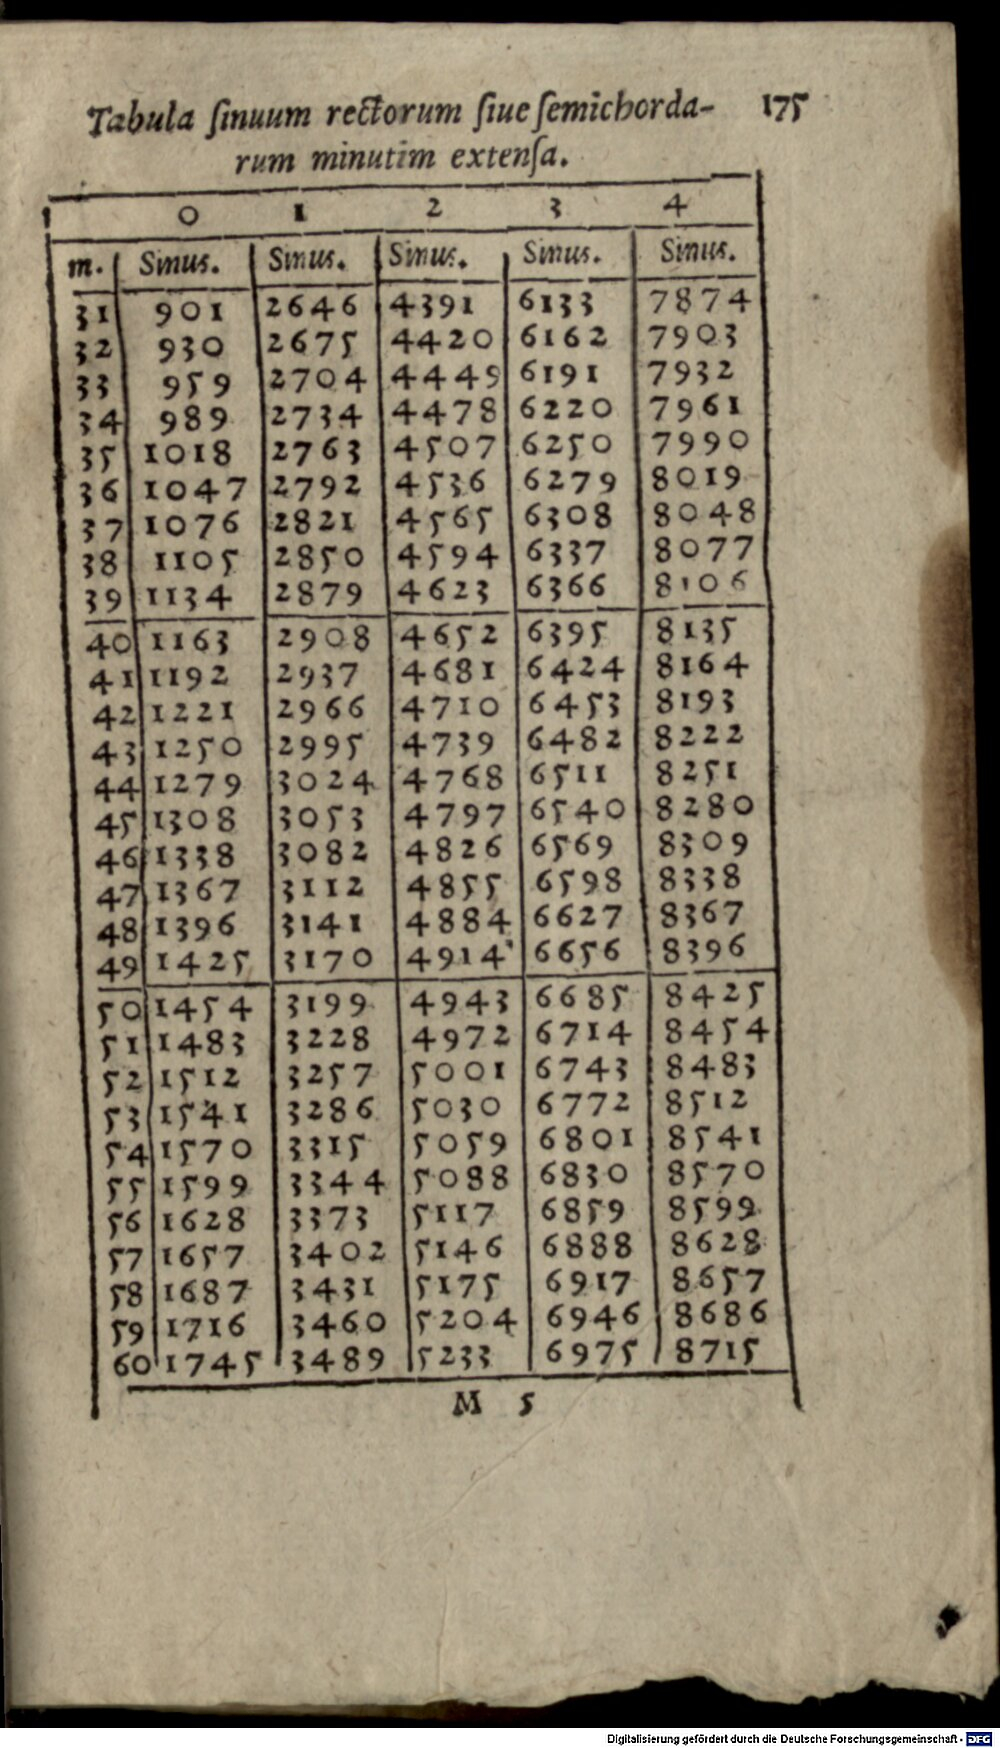 Tabula ſinuum rectorum ſiue ſemichorda- 175
rum minutim extenſa.
0 1 2 3 4
m. Sinus. Sinus. Sinus. Sinus. Sinus.
31 901 2646 4391 6133 7874
32 930 2675 4420 6162 7903
33 959 2704 4449 6191 7932
34 989 2734 4478 6220 7961
35 1018 2763 4507 6250 7990
36 1047 2792 4536 6279 8019
37 1076 2821 4565 6308 8048
38 1105 2850 4594 6337 8077
39 1134 2879 4623 6366 8106
40 1163 2908 4652 6395 8135
41 1192 2937 4681 6424 8164
42 1221 2966 4710 6453 8193
43 1250 2995 4739 6482 8222
44 1279 3024 4768 6511 8251
45 1308 3053 4797 6540 8280
46 1338 3082 4826 6569 8309
47 1367 3112 4855 6598 8338
48 1396 3141 4884 6627 8367
49 1425 3170 4914 6656 8396
50 1454 3199 4943 6685 8425
51 1483 3228 4972 6714 8454
52 1512 3257 5001 6743 8483
53 1541 3286 5030 6772 8512
54 1570 3315 5059 6801 8541
55 1599 3344 5088 6830 8570
56 1628 3373 5117 6859 8599
57 1657 3402 5146 6888 8628
58 1687 3431 5175 6917 8657
59 1716 3460 5204 6946 8686
60 1745 3489 5233 6975 8715
M 5
Digitalisierung gefördert durch die Deutsche Forschungsgemeinschaft - DFG